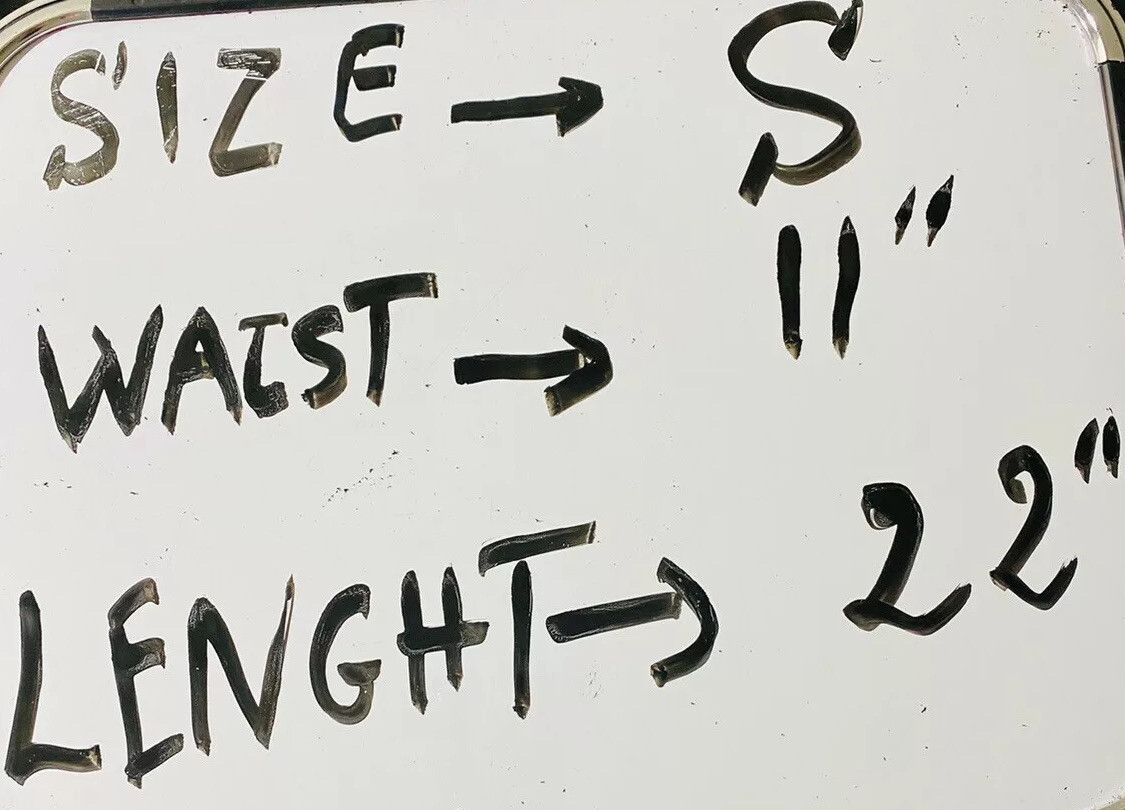 SIZE → S
WAIST → 11"
LENGHT → 22"